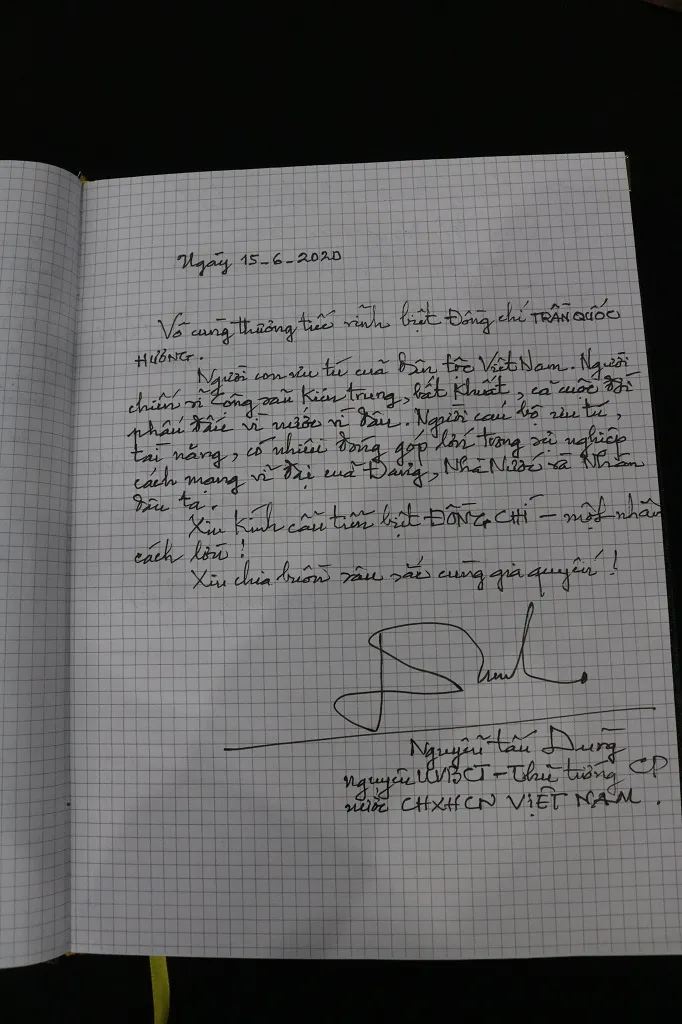 Ngày 15-6-2020
Vô cùng thương tiếc vĩnh biệt Đồng chí TRẦN QUỐC
HƯƠNG.
Người con ưu tú của dân tộc Việt Nam. Người
chiến sĩ Cộng sản kiên trung, bất khuất, cả cuộc đời
phấn đấu vì nước vì dân. Người cán bộ ưu tú,
tài năng, có nhiều đóng góp lớn trong sự nghiệp
cách mạng vĩ đại của Đảng, Nhà Nước và Nhân
dân ta.
Xin kính cẩn tiễn biệt ĐỒNG CHÍ - một nhân
cách lớn!
Xin chia buồn sâu sắc cùng gia quyến!
Nguyễn tấn Dũng
nguyên UVBCT - Thủ tướng CP
nước CHXHCN VIỆT NAM.